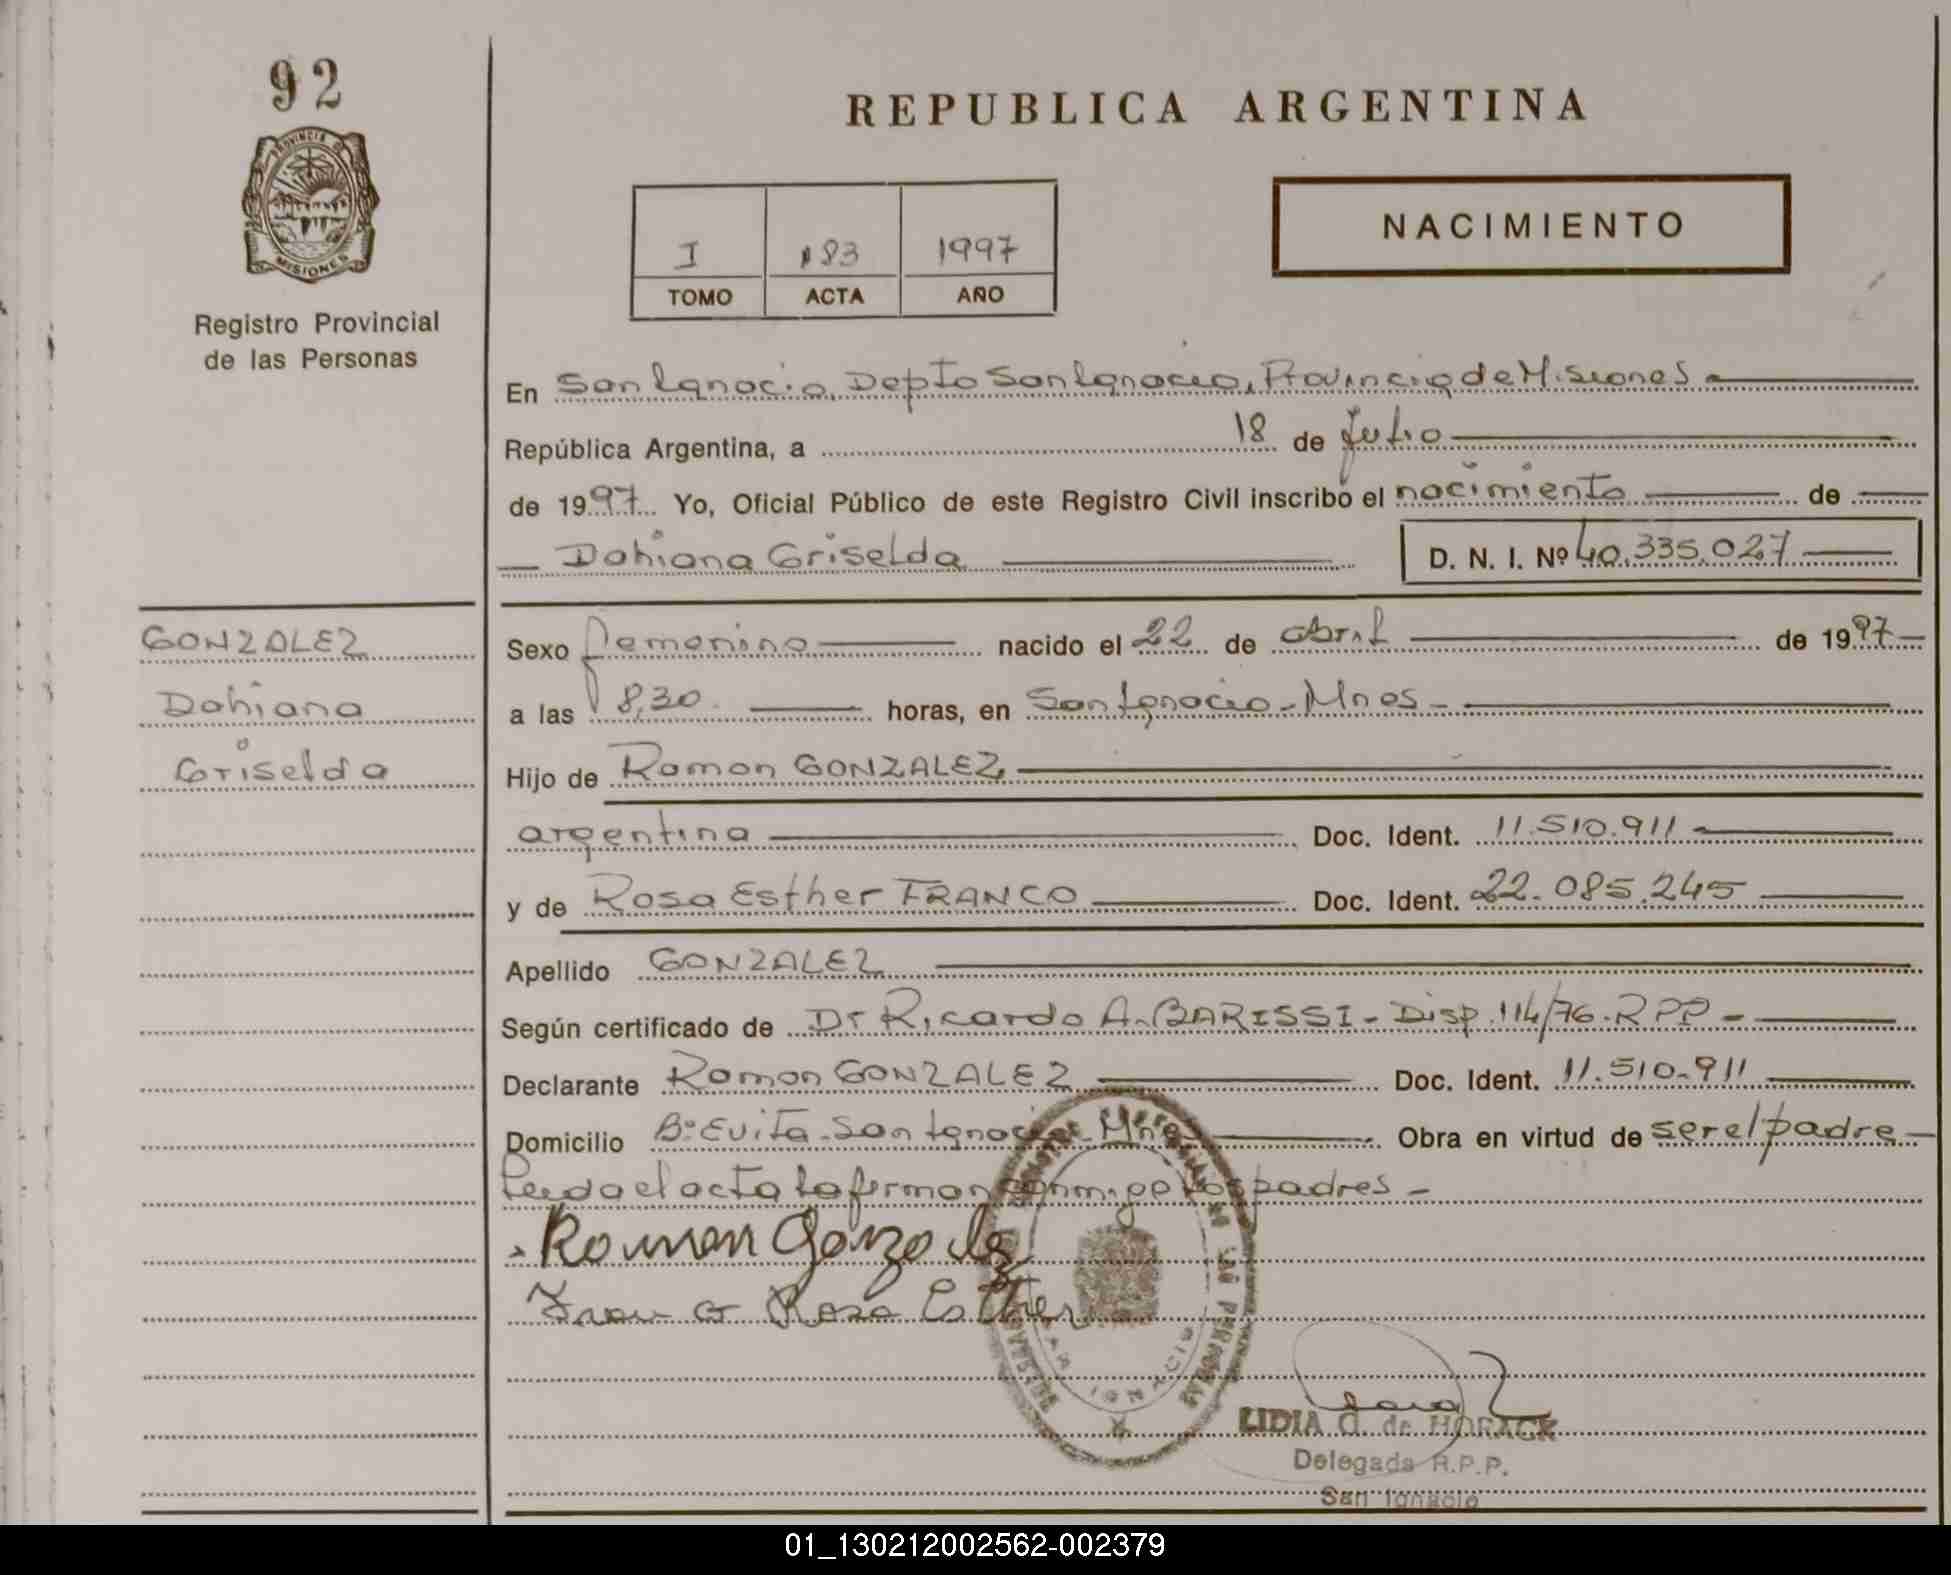 92
PROVINCIA DE
MISIONES
Registro Provincial
de las Personas
REPUBLICA ARGENTINA
NACIMIENTO
I 183 1997
TOMO ACTA AÑO
En San Ignacio, Depto San Ignacio, Provincia de Misiones
República Argentina, a 18 de Julio
de 1997 Yo, Oficial Público de este Registro Civil inscribo el nacimiento de
Dahiana Griselda D. N. I. Nº 40.335.027
GONZALEZ
Dahiana
Griselda
Sexo femenino nacido el 22 de abril de 1997
a las 8,30 horas, en San Ignacio - Mnes -
Hijo de Ramon GONZALEZ
argentina Doc. Ident. 11.510.911
y de Rosa Esther FRANCO Doc. Ident. 22.085.245
Apellido GONZALEZ
Según certificado de Dr Ricardo A. BARISSI - Disp. 114/76 - RPP -
Declarante Ramon GONZALEZ Doc. Ident. 11.510.911
Domicilio Bº Evita - San Ignacio - Mnes Obra en virtud de ser el padre -
Leida el acta la firman conmigo los padres -
Ramon Gonzalez
Franco Rosa Esther
DE LAS PERSONAS
SAN IGNACIO
LIDIA G. de HORACK
Delegada R.P.P.
San Ignacio
01_130212002562-002379